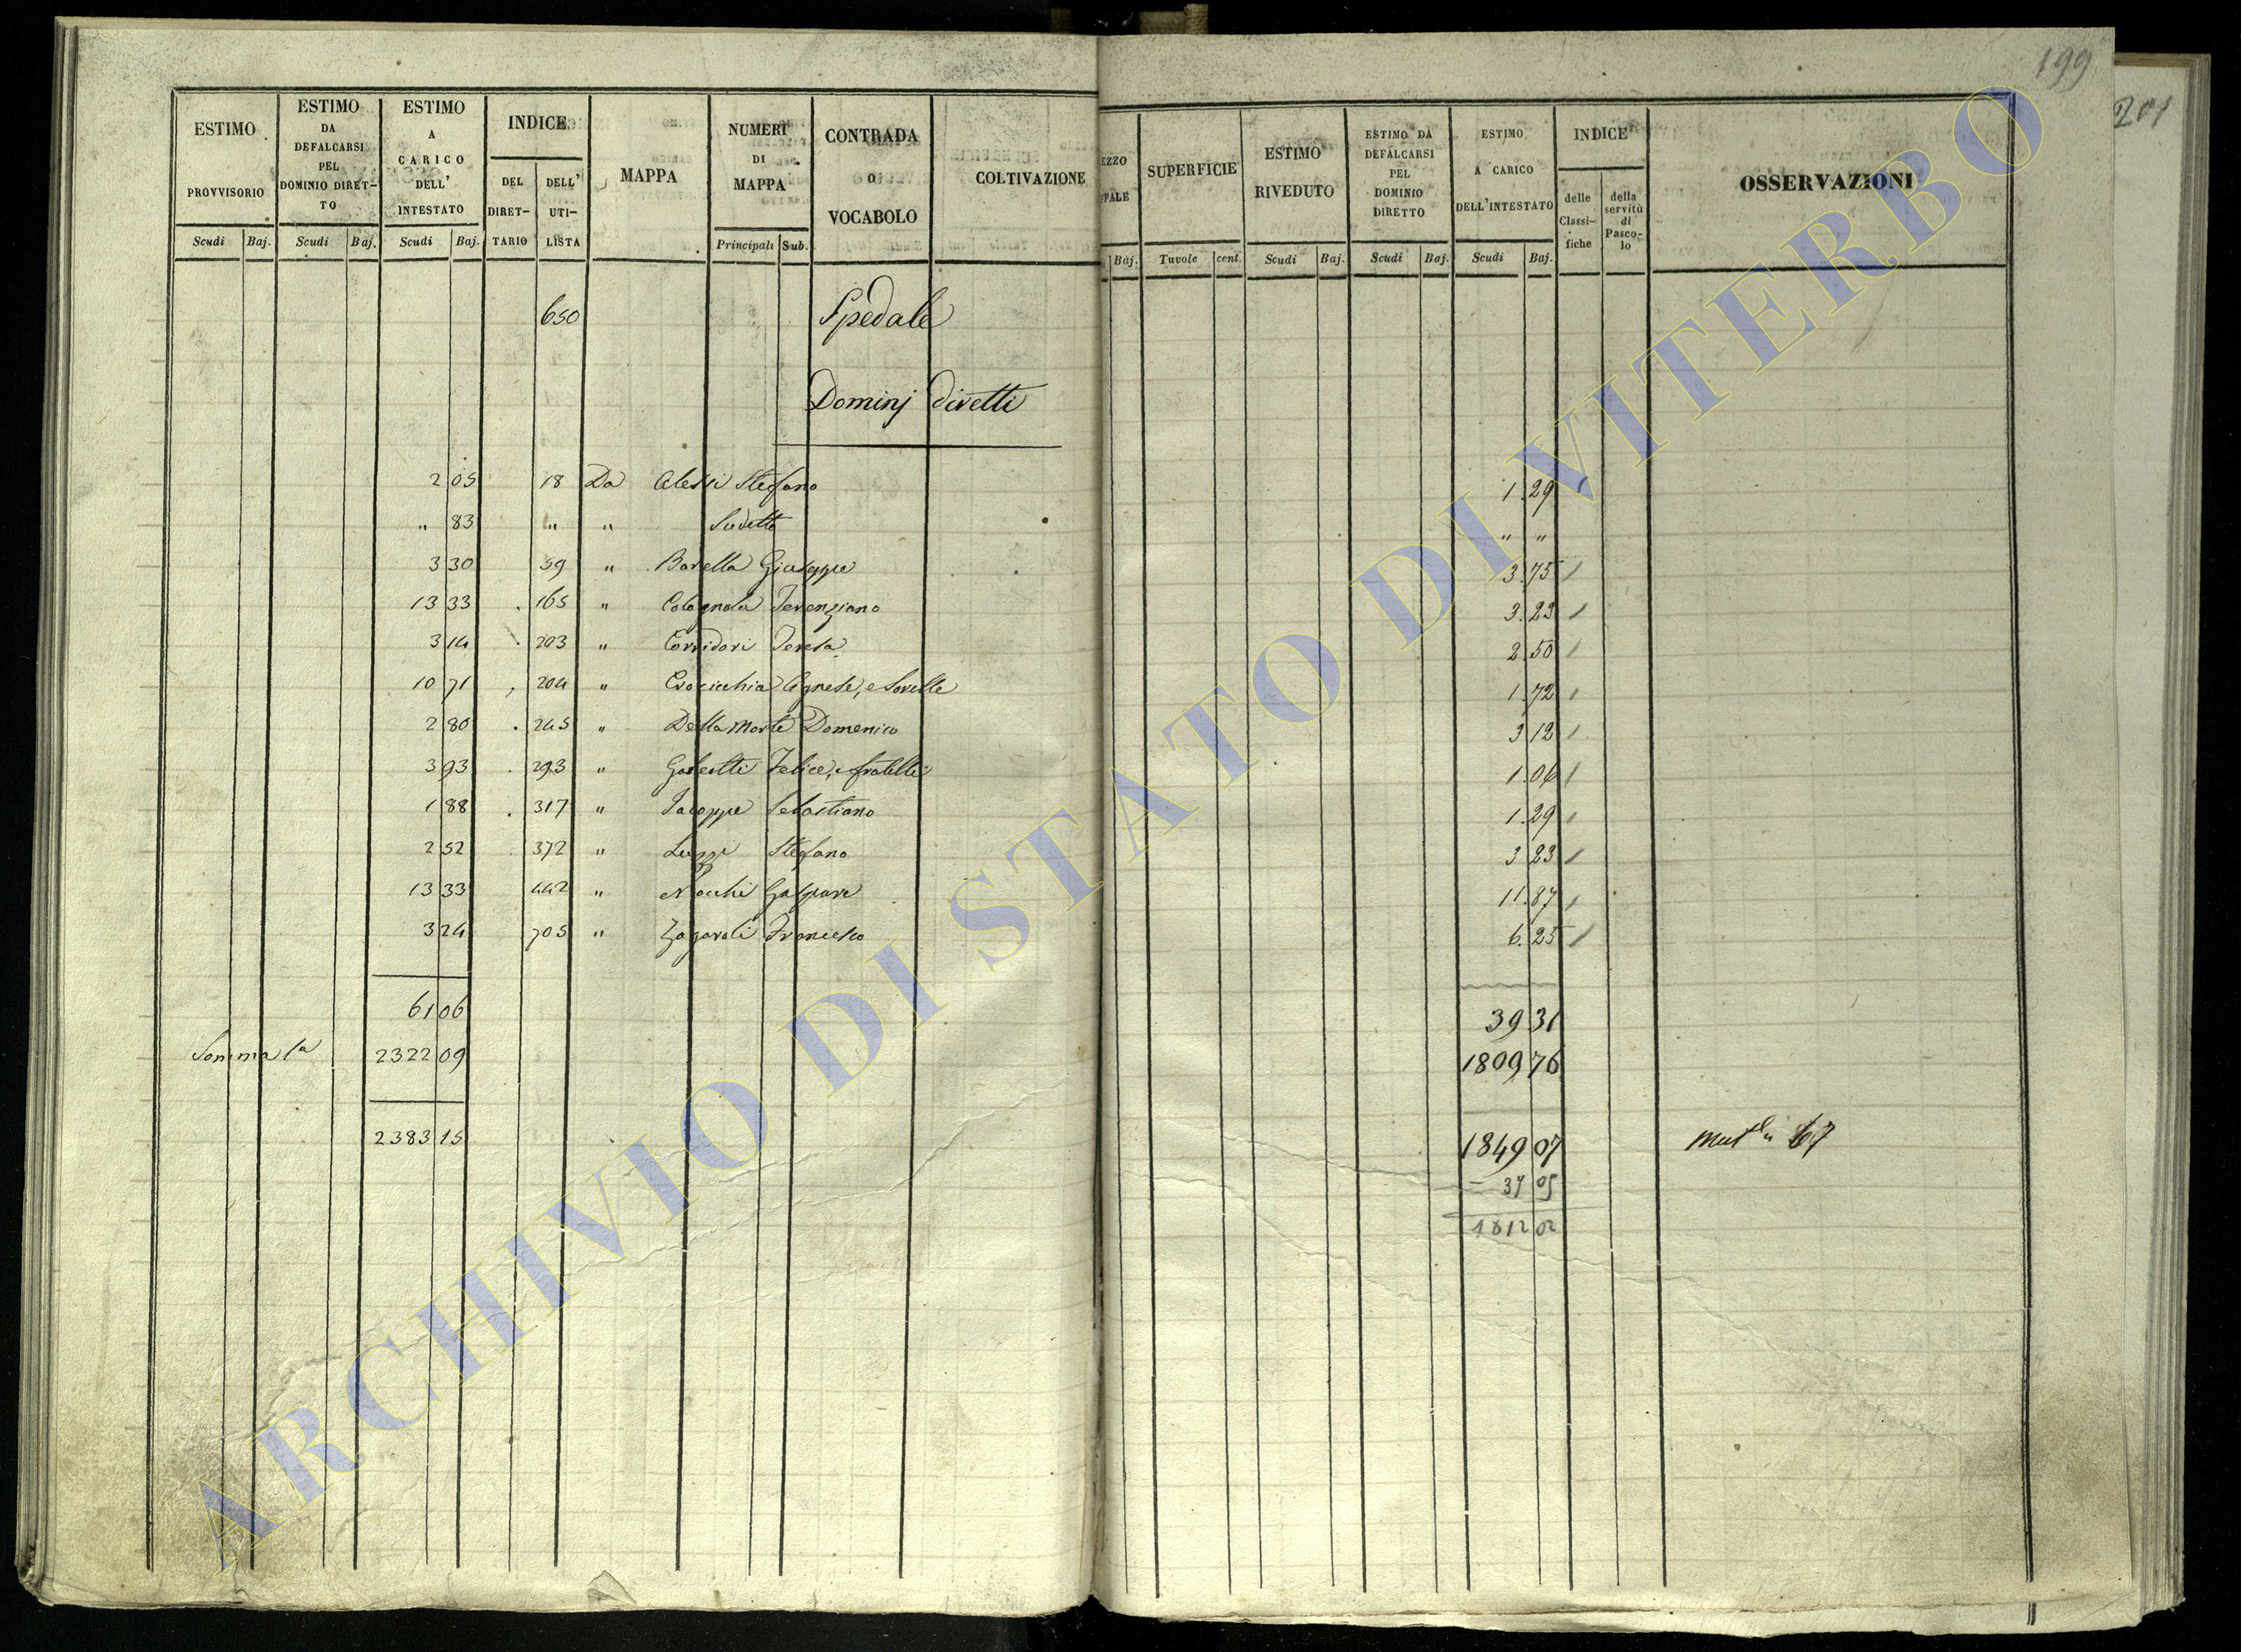 199
201
ESTIMO PROVVISORIO
Scudi Baj.
ESTIMO DA DEFALCARSI PEL DOMINIO DIRET-TO
Scudi Baj.
ESTIMO A CARICO DELL' INTESTATO
Scudi Baj.
INDICE
DEL DIRET-TARIO
DELL' UTI-LISTA
MAPPA
NUMERI DI MAPPA
Principali Sub.
CONTRADA O VOCABOLO
COLTIVAZIONE
EZZO
Baj.
SUPERFICIE
Tavole cent.
ESTIMO RIVEDUTO
Scudi Baj.
ESTIMO DA DEFALCARSI PEL DOMINIO DIRETTO
Scudi Baj.
ESTIMO A CARICO DELL'INTESTATO
Scudi Baj.
INDICE
delle Classi-fiche
della servitù di Pasco-lo
OSSERVAZIONI
650 Spedale
Dominj diretti
2 05 18 Da Alessi Stefano 1.29
" 83 " " Sudetto " "
3 30 59 " Barella Giuseppe 3.75
13 33 165 " Colagnola Terenziano 3.23
3 14 203 " Corridori Teresa 2.50
10 71 204 " Crocicchia Agnese, e Sorelle 1.72
2 80 245 " Della Morte Domenico 3 12
3 93 293 " Galeotti Felice, e fratelli 1.06
1 88 317 " Jacoppe Sebastiano 1.29
2 52 372 " Luzzi Stefano 3 23
13 33 442 " Nocchi Gaspare 11.87
3 24 705 " Zagaroli Francesco 6.25
61 06 39 31
Somma 1a 2322 09 1809 76
2383 15 1849 07
- 37 05
1812 02
67
ARCHIVIO DI STATO DI VITERBO